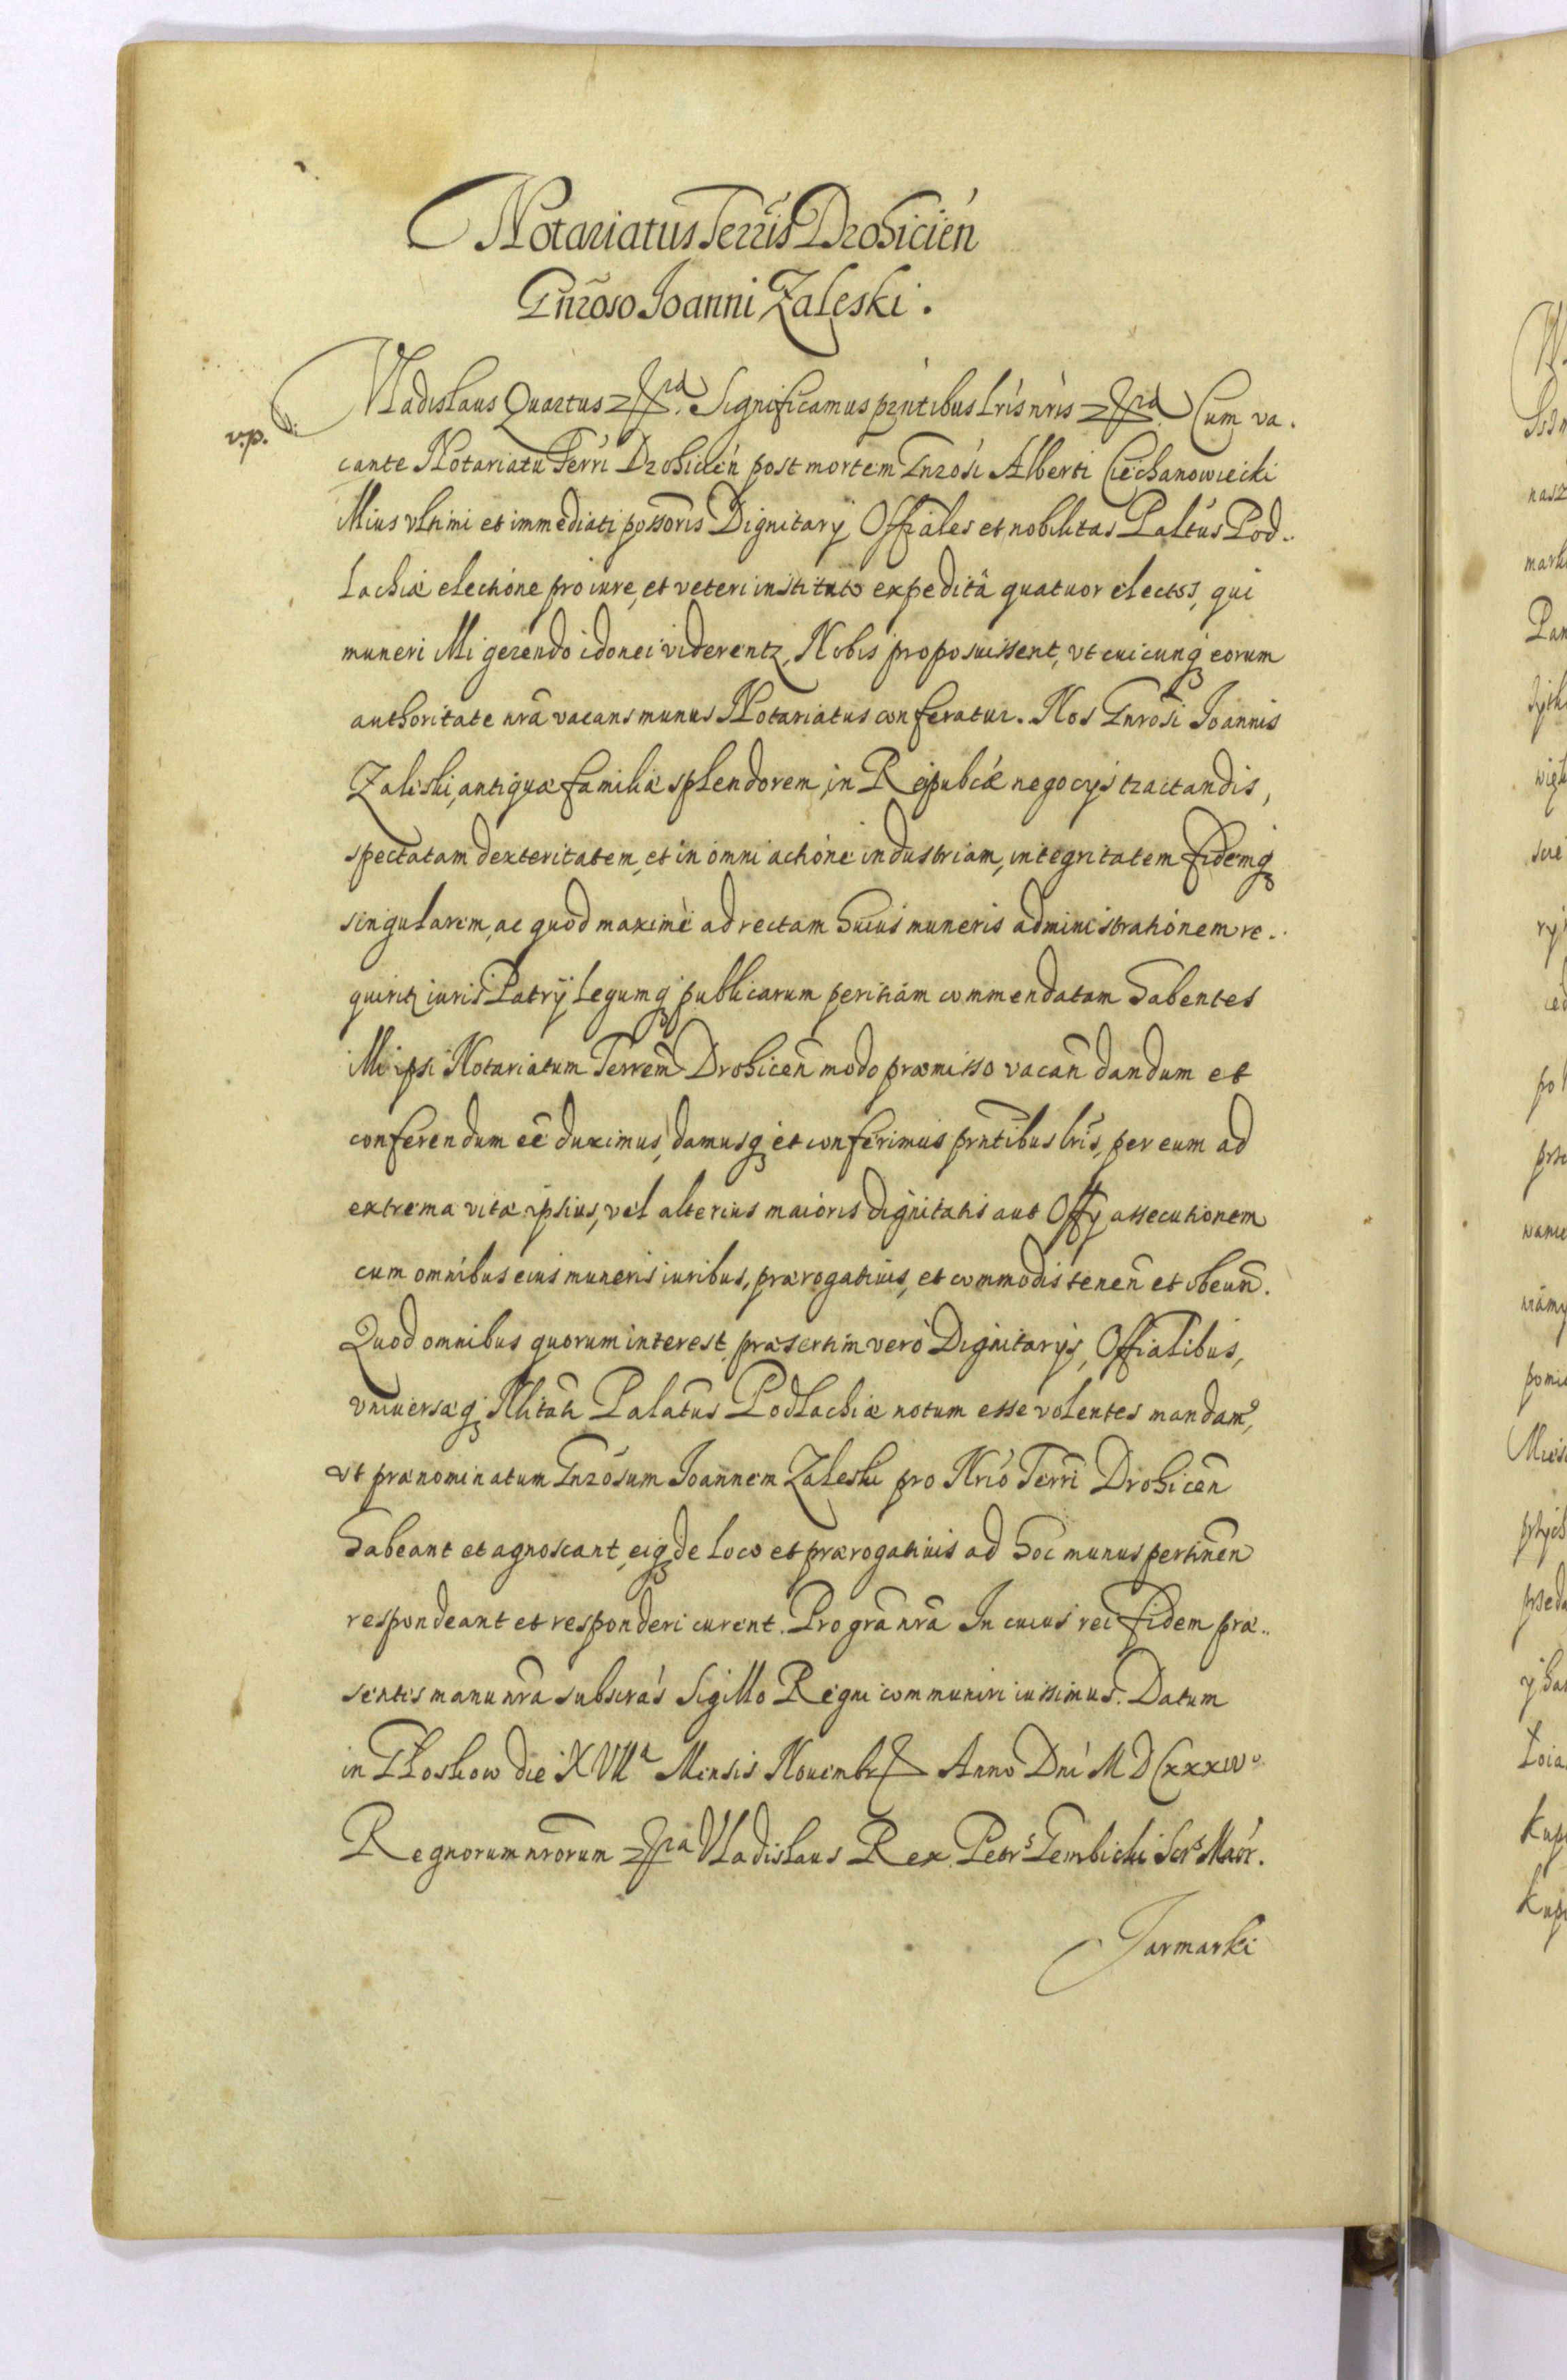 Notariatus Terris Drohicien̄
Gn̄roso Joanni Zaleski.
v.p.
Vladislaus Quartus etc. Significamus prn̄tibus lr̄is nr̄is etc. Cum va-
cante Notariatu Terr̄i Drohicien̄ post mortem Gnrosi Alberti Ciechanowiecki
illius vltimi et immediati possor̄is Dignitarÿ Offiales et nobilitas Paltus Pod-
lachiæ electione pro iure, et veteri instituto expeditâ quatuor electos, qui
muneri illi gerendo idonei viderentr, Nobis proposuissent, vt cuicunq eorum
authoritate nr̄a vacans munus Notariatus conferatur. Nos Gnrōsi Joannis
Zaleski, antiquæ familiæ splendorem, in Reipubcæ negocÿs tractandis,
spectatam dexteritatem, et in omni actione industriam, integritatem fidemq
singularem, ac quod maximè ad rectam huius muneris administrationem re-
quiritr iuris Patrÿ legumq publicarum peritiam commendatam habentes
illi ipsi Notariatum Terren̄ Drohicen̄ modo præmisso vacan̄ dandum et
conferendum eē duximus, damusq et conferimus prn̄tibus lr̄is, per eum ad
extrema vitæ ipsius, vel alterius maioris dignitatis aut Offÿ assecutionem
cum omnibus eius muneris iuribus, prærogatiuis, et commodis tenen̄ et obeun̄.
Quod omnibus quorum interest, præsertim verò Dignitarÿs, Offialibus,
vniuersæq Nlitati Palatus Podlachiæ notum esse volentes mandams,
vt prænominatum Gnrosum Joannem Zaleski pro Nrio Terr̄i Drohicen̄
habeant et agnoscant, eiq de loco et prærogatiuis ad hoc munus pertinen̄
respondeant et responderi curent. Pro gr̄a nr̄a In cuius rei fidem præ-
sentes manu nr̄a subscras Sigillo Regni communiri iussimus. Datum
in die XVIIa Mensis Nouembr Anno Dn̄i MDCxxxivo
Regnorum nr̄orum etc. Vladislaus Rex. Petrs Gembicki Scrs Maior.
Jarmarki